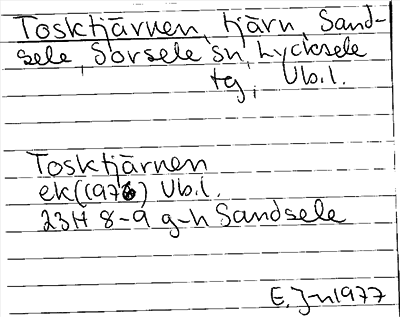 Tosktjärnen, tjärn, Sand-
sele, Sorsele sn, Lycksele
tg, Vb.l.
Tosktjärnen
ek(1976) Vb.l.
23H 8-9 g-h Sandsele
E. J-n 1977